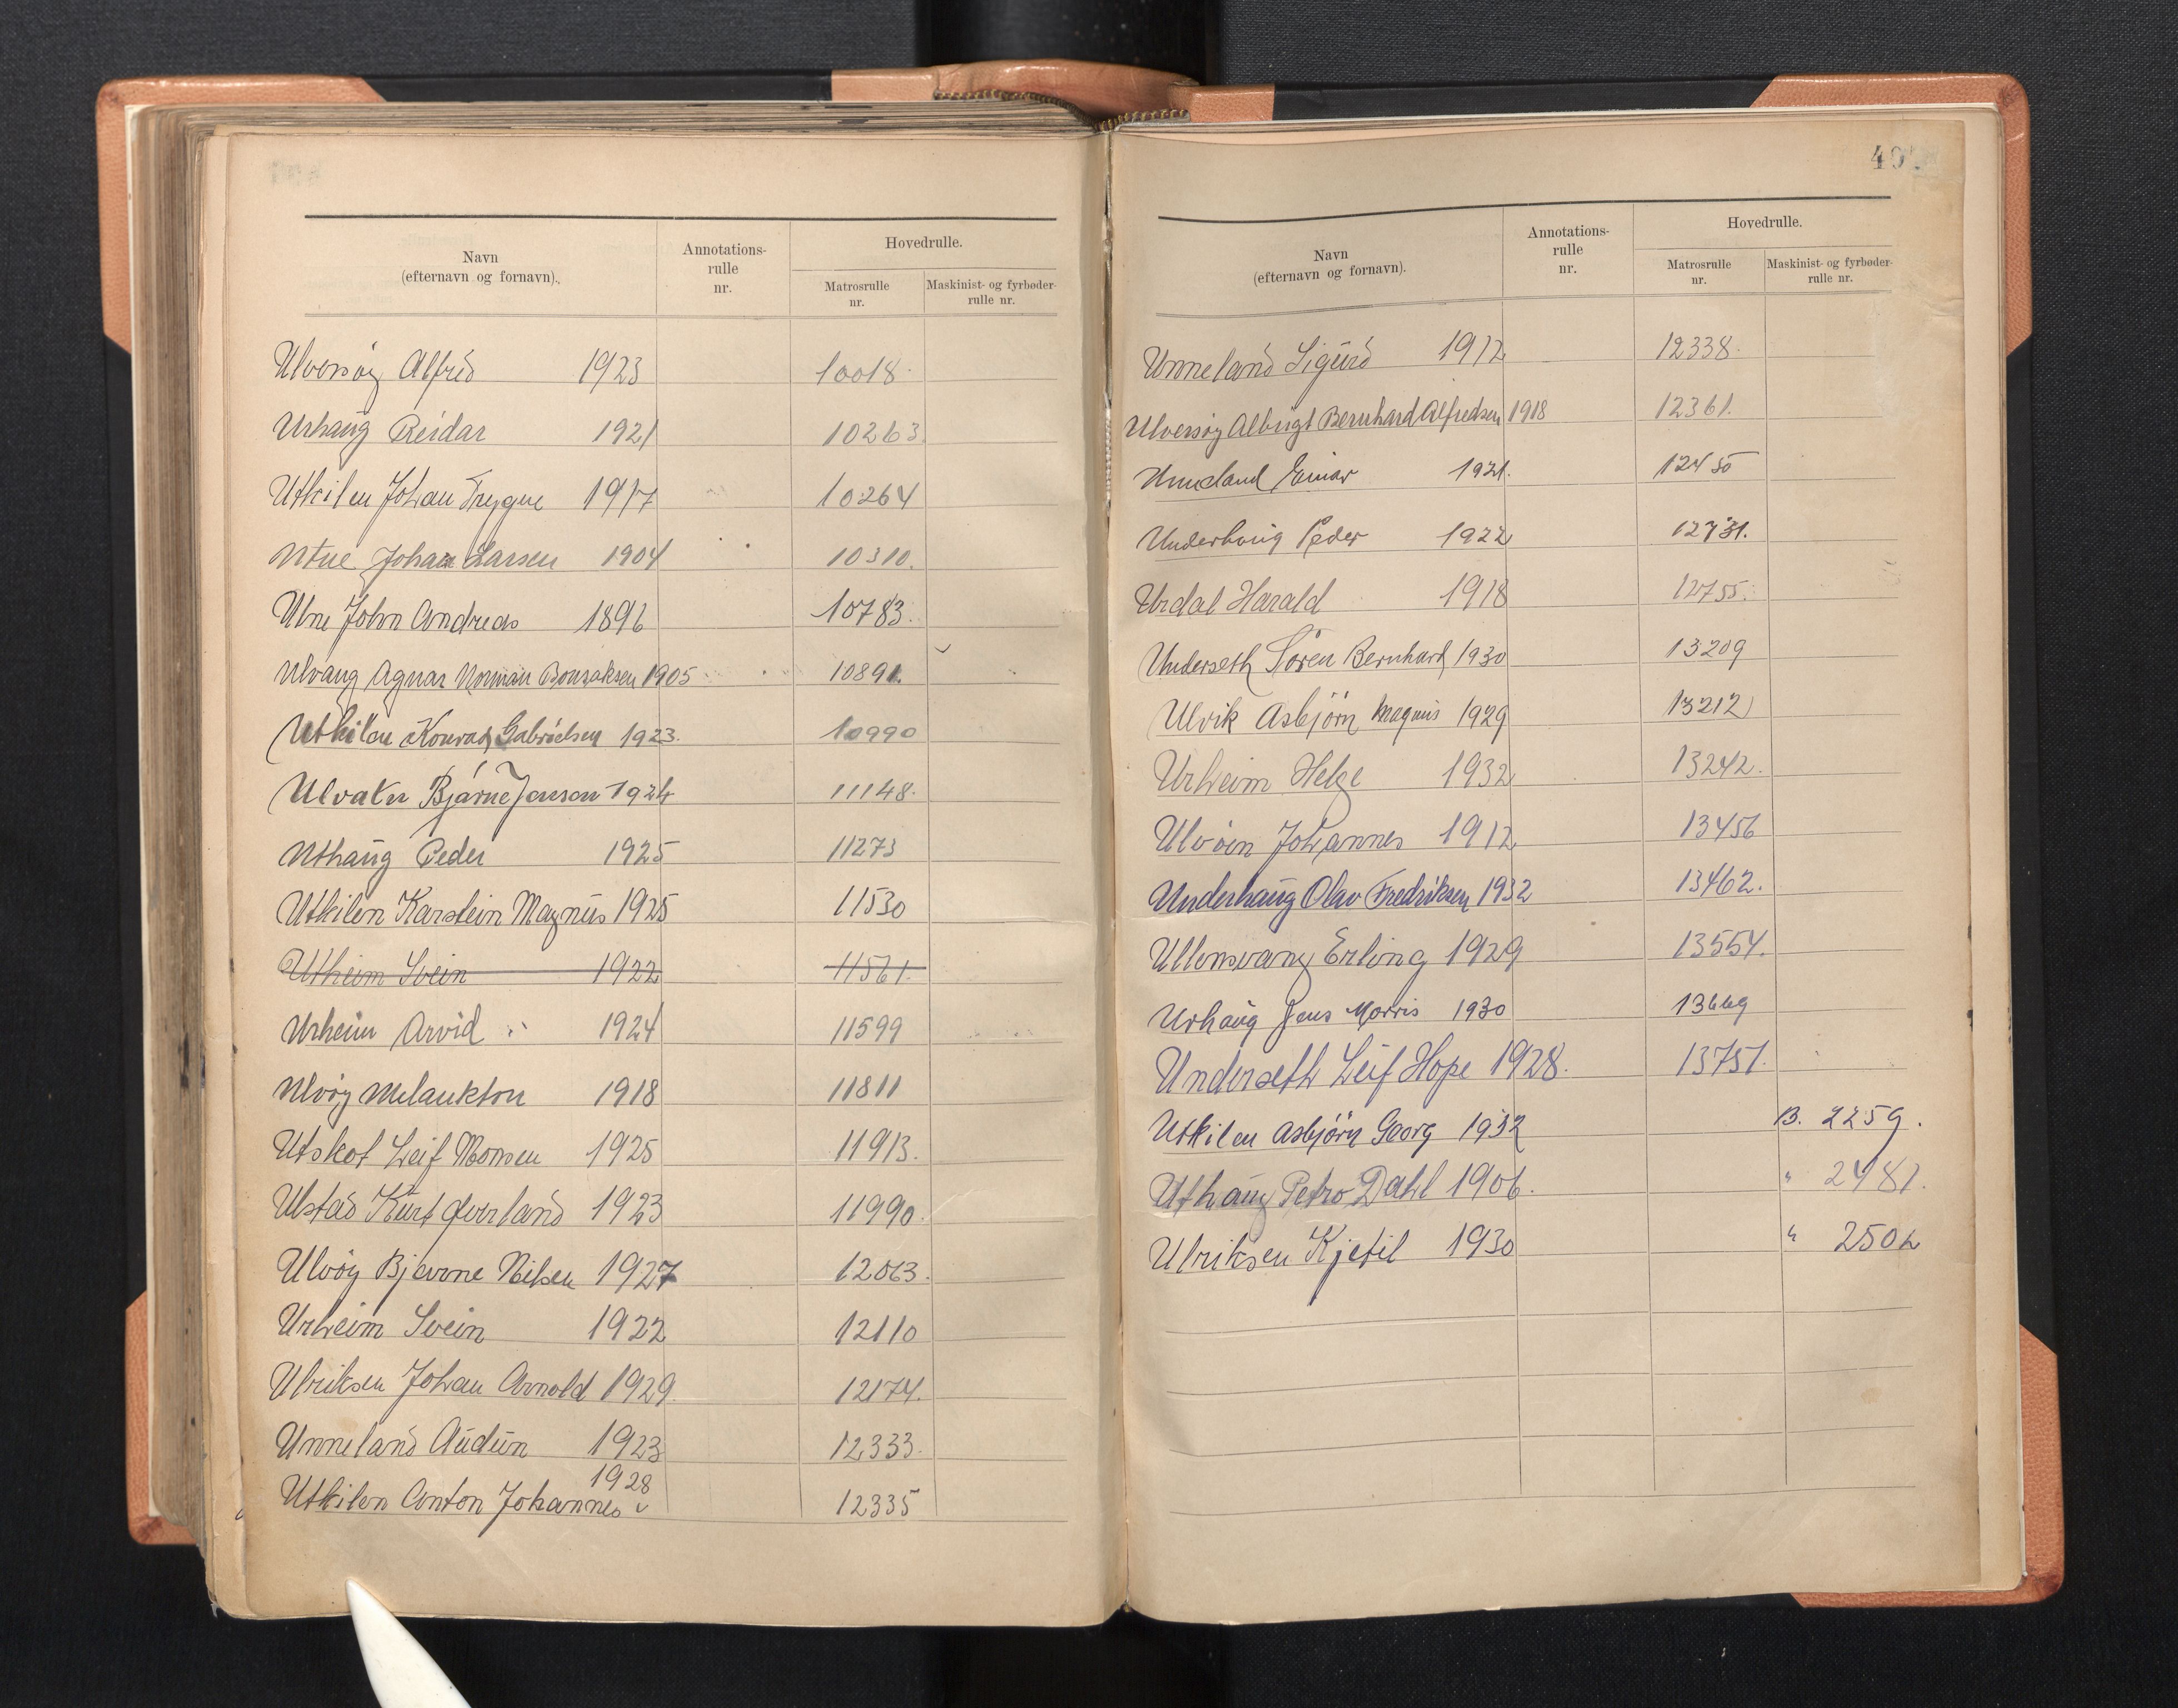 Navn
(efternavn og fornavn).
Annotations-
rulle
nr.
Hovedrulle.
Matrosrulle
nr.
Maskinist- og fyrbøder-
rulle nr.
Ulversøy Alfred 1923 10018.
Urhaug Reidar 1921 10263.
Utkilen Johan Trygve 1917 10264
Utne Johan Larsen 1904 10310.
Ulne John Andreas 1896 10783.
Ulvang Agnar Norman Bonsaksen 1905 10891.
Utkilen Konrad Gabrielsen 1923. 10990
Ulvatn Bjarne Jenson 1924 11148.
Uthaug Peder 1925 11273
Utkilen Karstein Magnus 1925 11530
Utheim Svein 1922 11561.
Urheim Arvid 1924 11599
Ulvøy Melankton 1918 11811
Utskot Leif Monsen 1925 11913.
Ulstad Kurt Øverland 1923 11990.
Ulvøy Bjarne Nilsen 1927 12063.
Urheim Svein 1922 12110
Ulriksen Johan Arnold 1929. 12174.
Unneland Audun 1923 12333.
1928
Utkilen Anton Johannes 12335
40
Navn
(efternavn og fornavn).
Annotations-
rulle
nr.
Hovedrulle.
Matrosrulle
nr.
Maskinist- og fyrbøder-
rulle nr.
Unneland Sigurd 1912 12338.
Ulversøy Albrigt Bernhard Alfredsen 1918 12361.
Unneland Einar 1921. 12450
Underhaug Peder 1922 12731.
Urdal Harald 1918 12755.
Underseth Søren Bernhard 1930 13209
Ulvik Asbjörn Magnus 1929 13212
Urheim Helge 1932 13242.
Ulvöen Johannes 1912 13456
Underhaug Olav Fredriksen 1932 13462.
Ullensvang Erling 1929 13554.
Urhaug Jens Morris 1930 13669
Underseth Leif Hope 1928. 13751.
Utkilen Asbjörn Georg 1932 B. 2259.
Uthaug Petro Dahl 1906. " 2481.
Ulriksen Kjetil 1930 " 2502